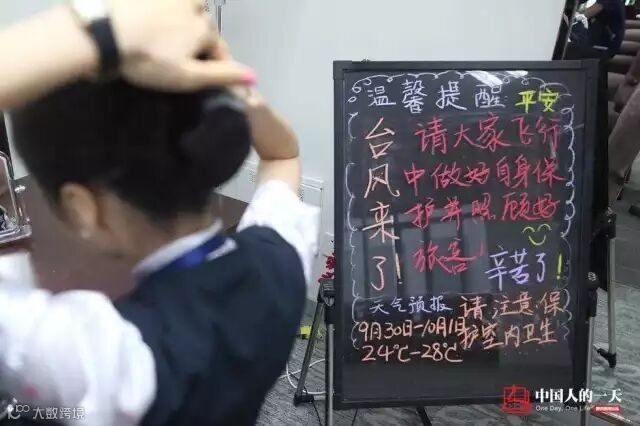 温馨提醒 平安
台风来了!
请大家飞行
中做好自身保
护并照顾好
旅客!
辛苦了!
天气预报
9月30日-10月1日
24℃-28℃
请注意保
护室内卫生
中国人的一天
One Day, One Life
大数跨境